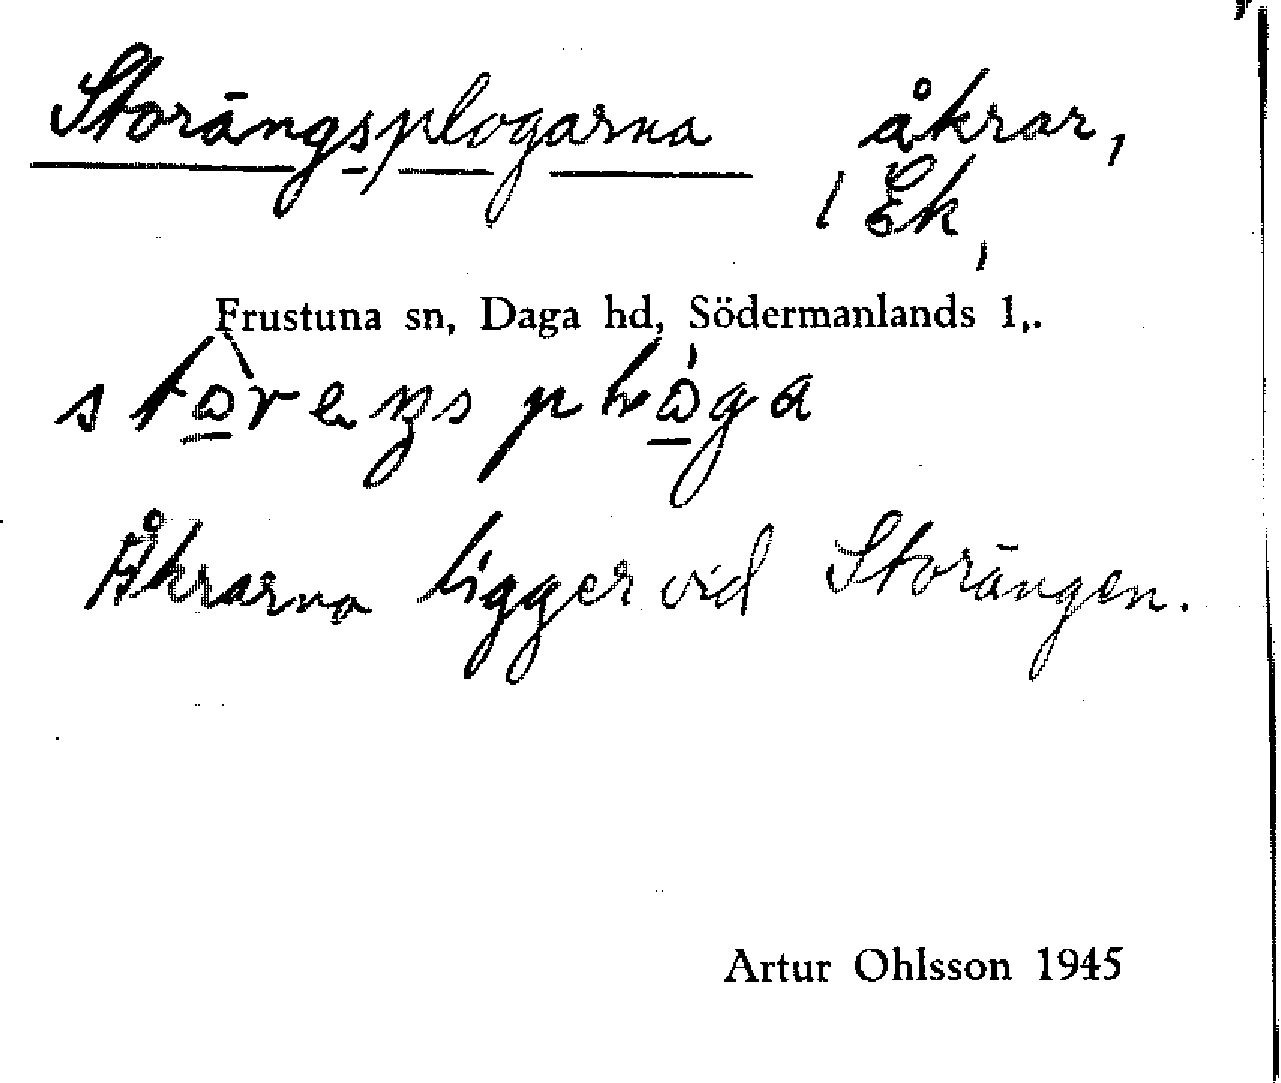 Storängsplogarna åkrar,
1 Ek,
Frustuna sn, Daga hd, Södermanlands l,.
Åkrarna ligger vid Storängen.
Artur Ohlsson 1945